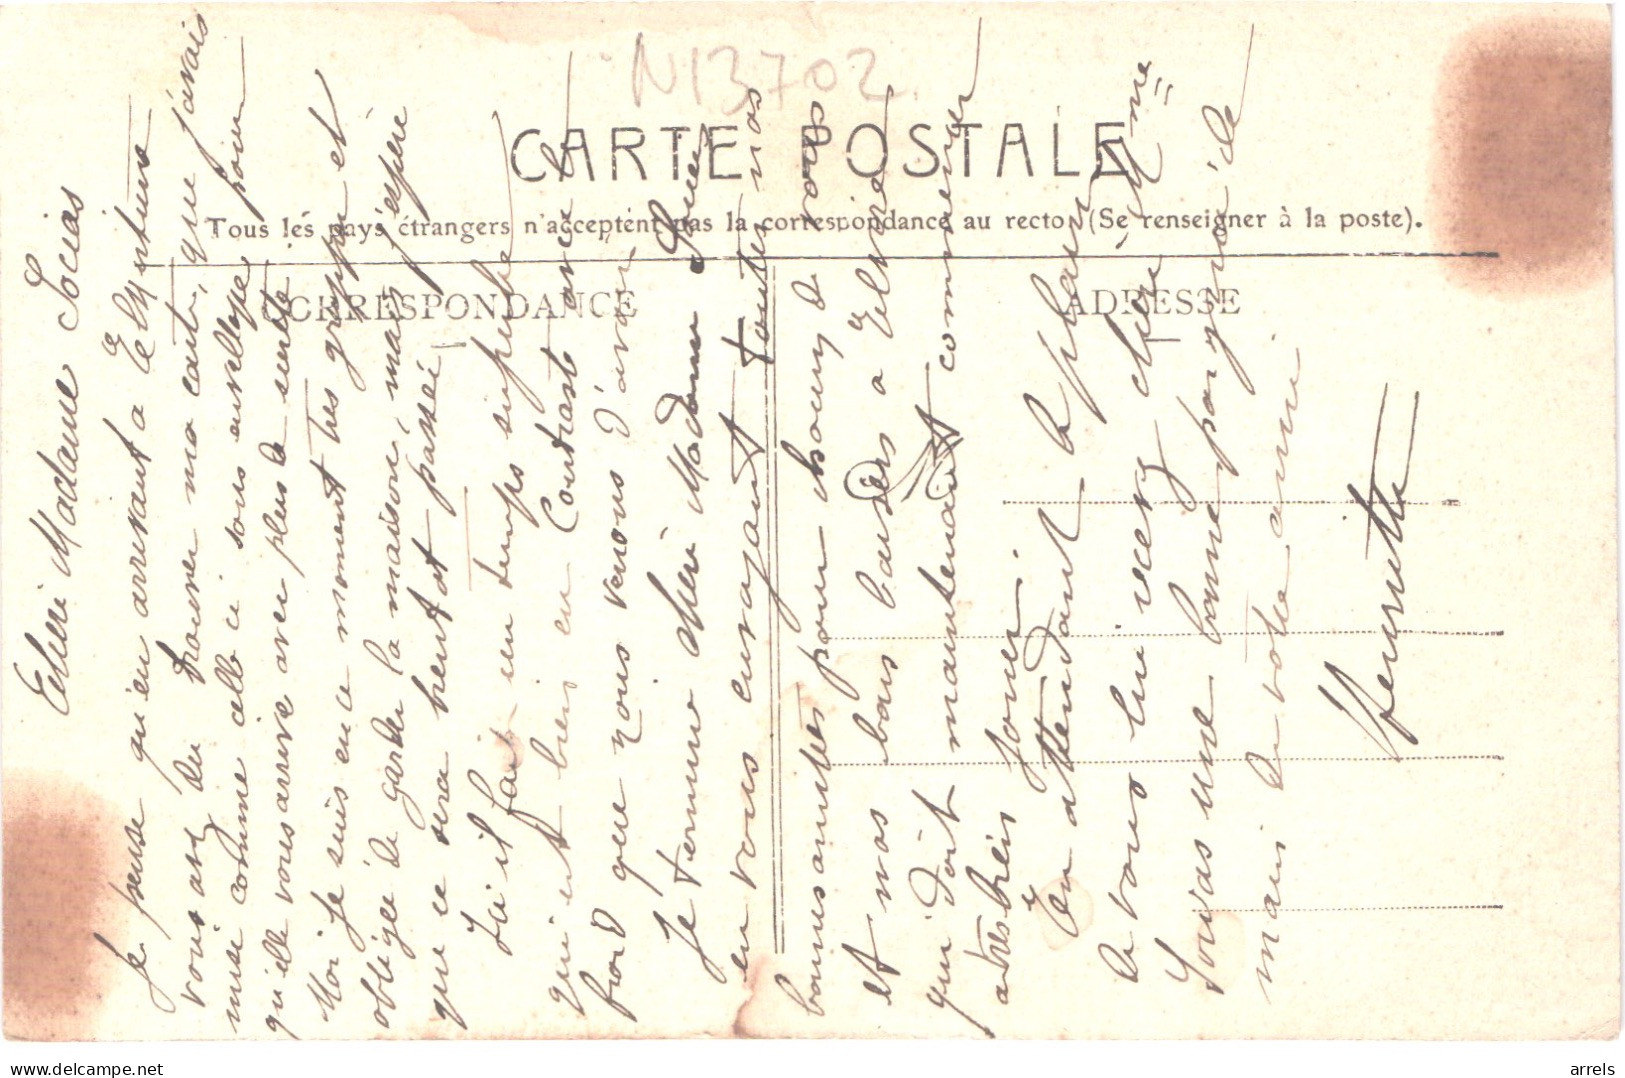 N13702
CARTE POSTALE
Tous les pays étrangers n'acceptent pas la correspondance au recto (Se renseigner à la poste).
CORRESPONDANCE
ADRESSE
Chère Madame Socias
Je pense qu'en arrivant à Elne
vous avez du trouver ma carte, que j'avais
mise comme celle ci sous enveloppe pour
qu'elle vous arrive avec plus de sureté
Moi je suis en ce moment très grippée et
obligée de garder la maison, mais j'espère
que ce sera bientot passée
Ici il fait un temps superbe
qui est bien en Contrast avec le
froid que nous venons d'avoir
Je termine chère Madame
en vous envoyant toutes nos
bonnes amitiés pour chacun de vous
et nos bons baisers à Elvire
qui doit maintenant commencer
a très bien jouer
En attendant le plaisir
de vous lire recevez chère Mme
Socias une bonne poignée de
main de votre amie
Henriette
delcampe.net
arrels